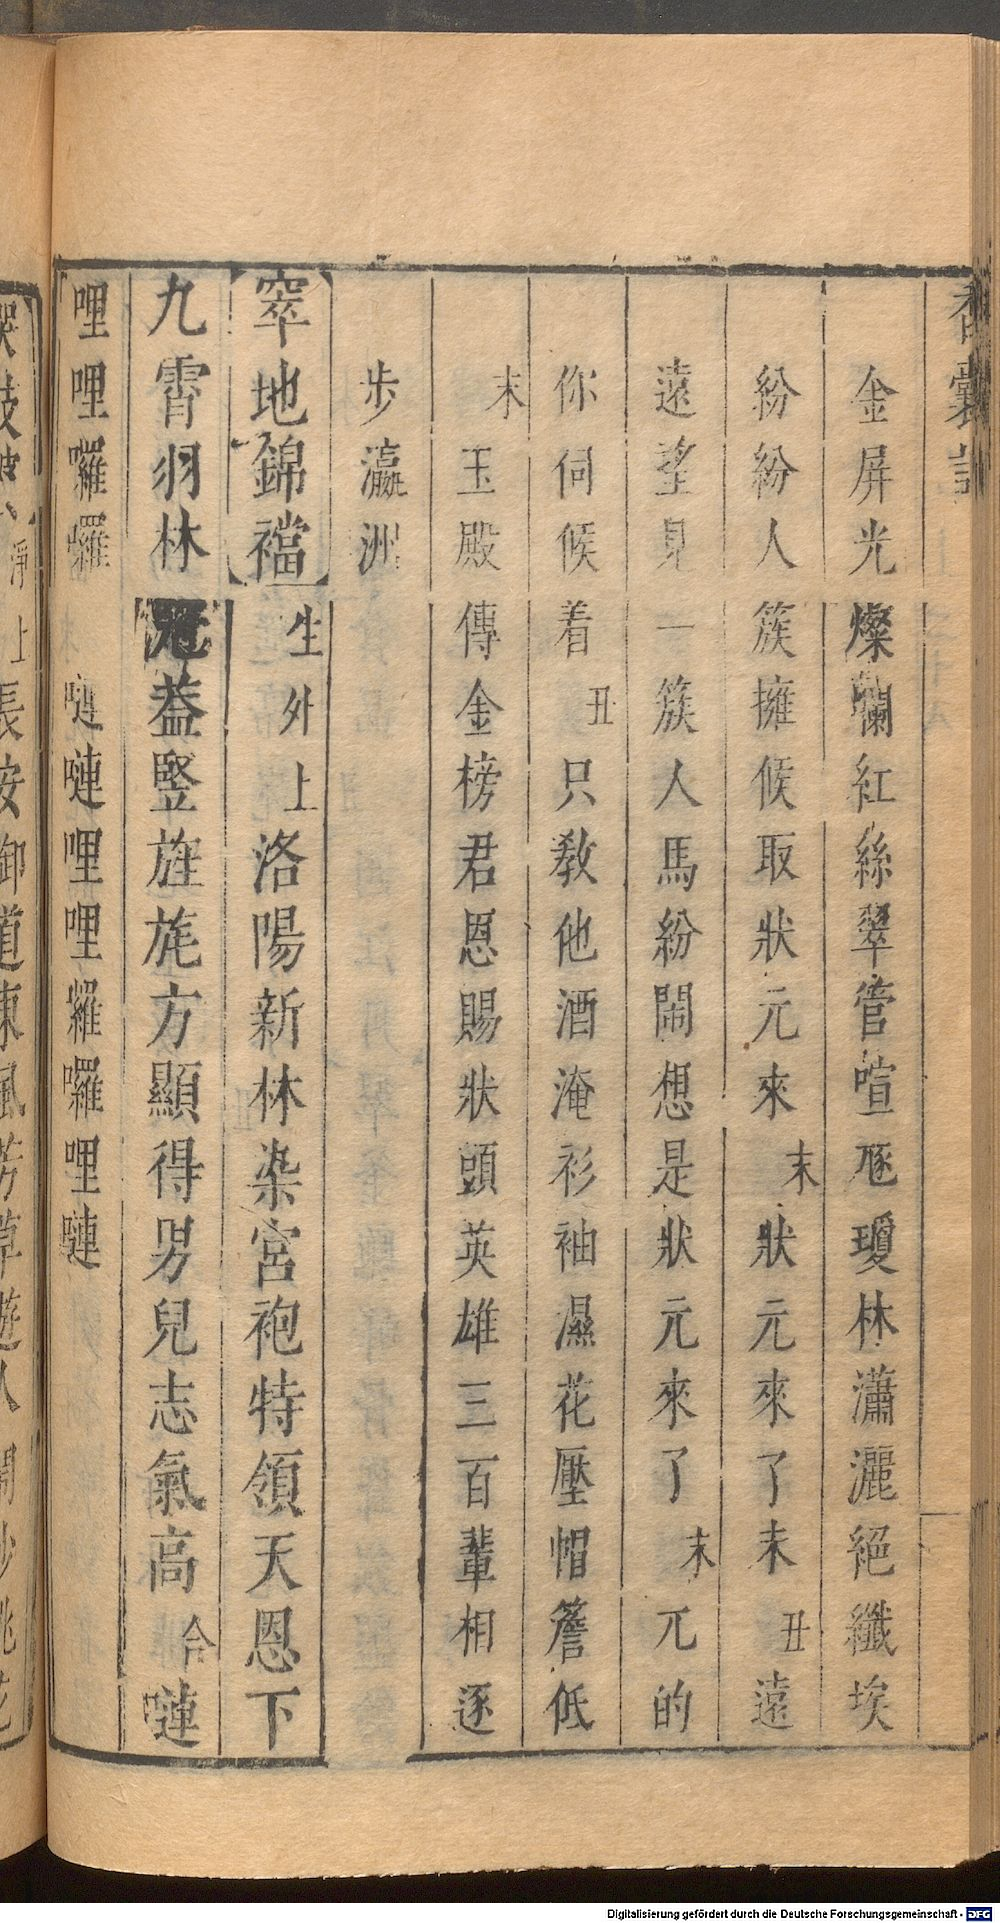 香囊記
金屏光燦爛紅絲翠管喧豗瓊林瀟灑絕纖埃
紛紛人簇擁候取狀元來末狀元來了未丑遠
遠望見一簇人馬紛鬧想是狀元來了末兀的
你伺候着丑只教他酒淹衫袖濕花壓帽簷低
末玉殿傳金榜君恩賜狀頭英雄三百輩相逐
步瀛洲
窣地錦襠生外上洛陽新林染宮袍特領天恩下
九霄羽林冠葢竪旌旄方顯得男兒志氣高合嗹
哩哩囉囉嗹嗹哩哩囉囉哩嗹
淨上長安御道東風芳草遊人鬧
Digitalisierung gefördert durch die Deutsche Forschungsgemeinschaft - DFG